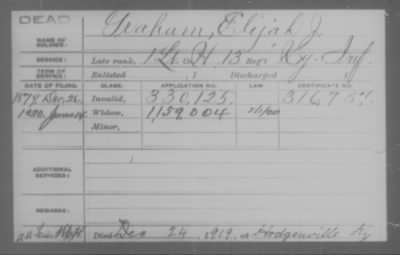 DEAD
NAME OF SOLDIER: Graham, Elijah J.
SERVICE: Late rank, 1 Lt. H, 13 Reg't Ky. Inf.
TERM OF SERVICE: Enlisted , 1 Discharged , 1
DATE OF FILING. CLASS. APPLICATION NO. LAW. CERTIFICATE NO.
1879, Dec. 26 Invalid, 330,125.
1920, Widow, 1159004
Minor,
ADDITIONAL SERVICES:
REMARKS:
Died Dec 24, 1919, at Hodgenville Ky